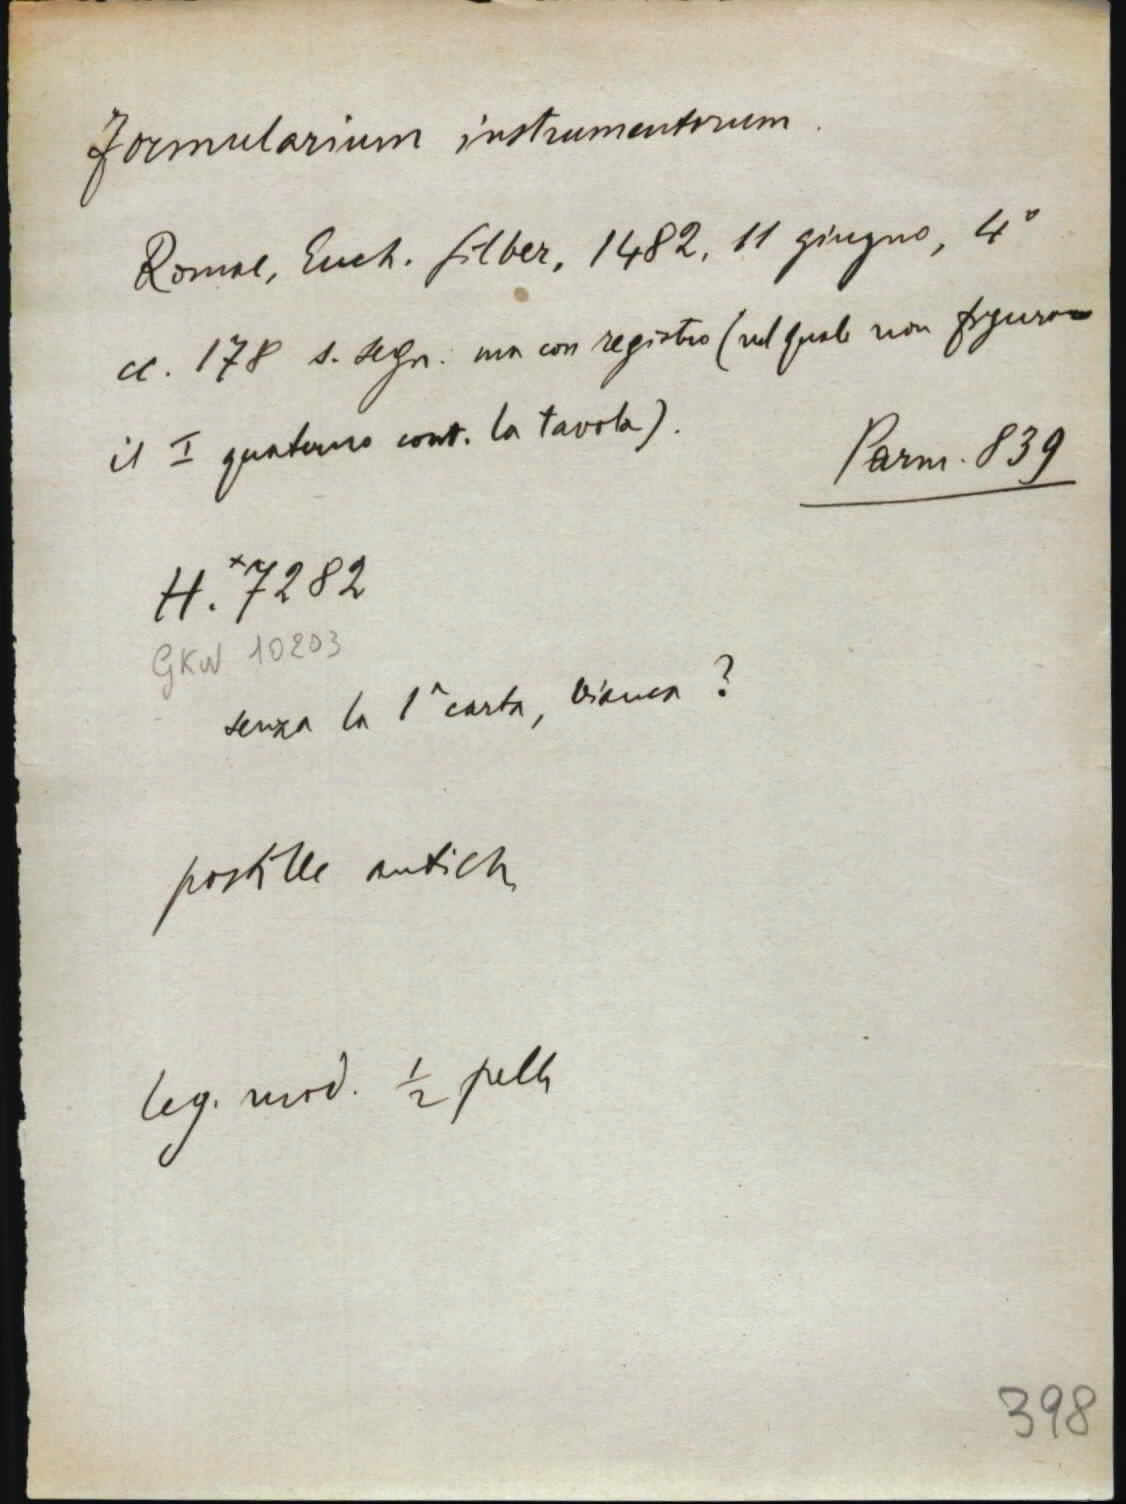 Formularium instrumentorum.
Romae, Euch. Silber, 1482, 11 giugno, 4°
cc. 178 s. segn. ma con registro (nel quale non figura
il I quaterno cont. la tavola).
Parm. 839
H. *7282
GKW 10203
senza la 1ª carta, bianca?
postille antiche
leg. mod. ½ pelle
398